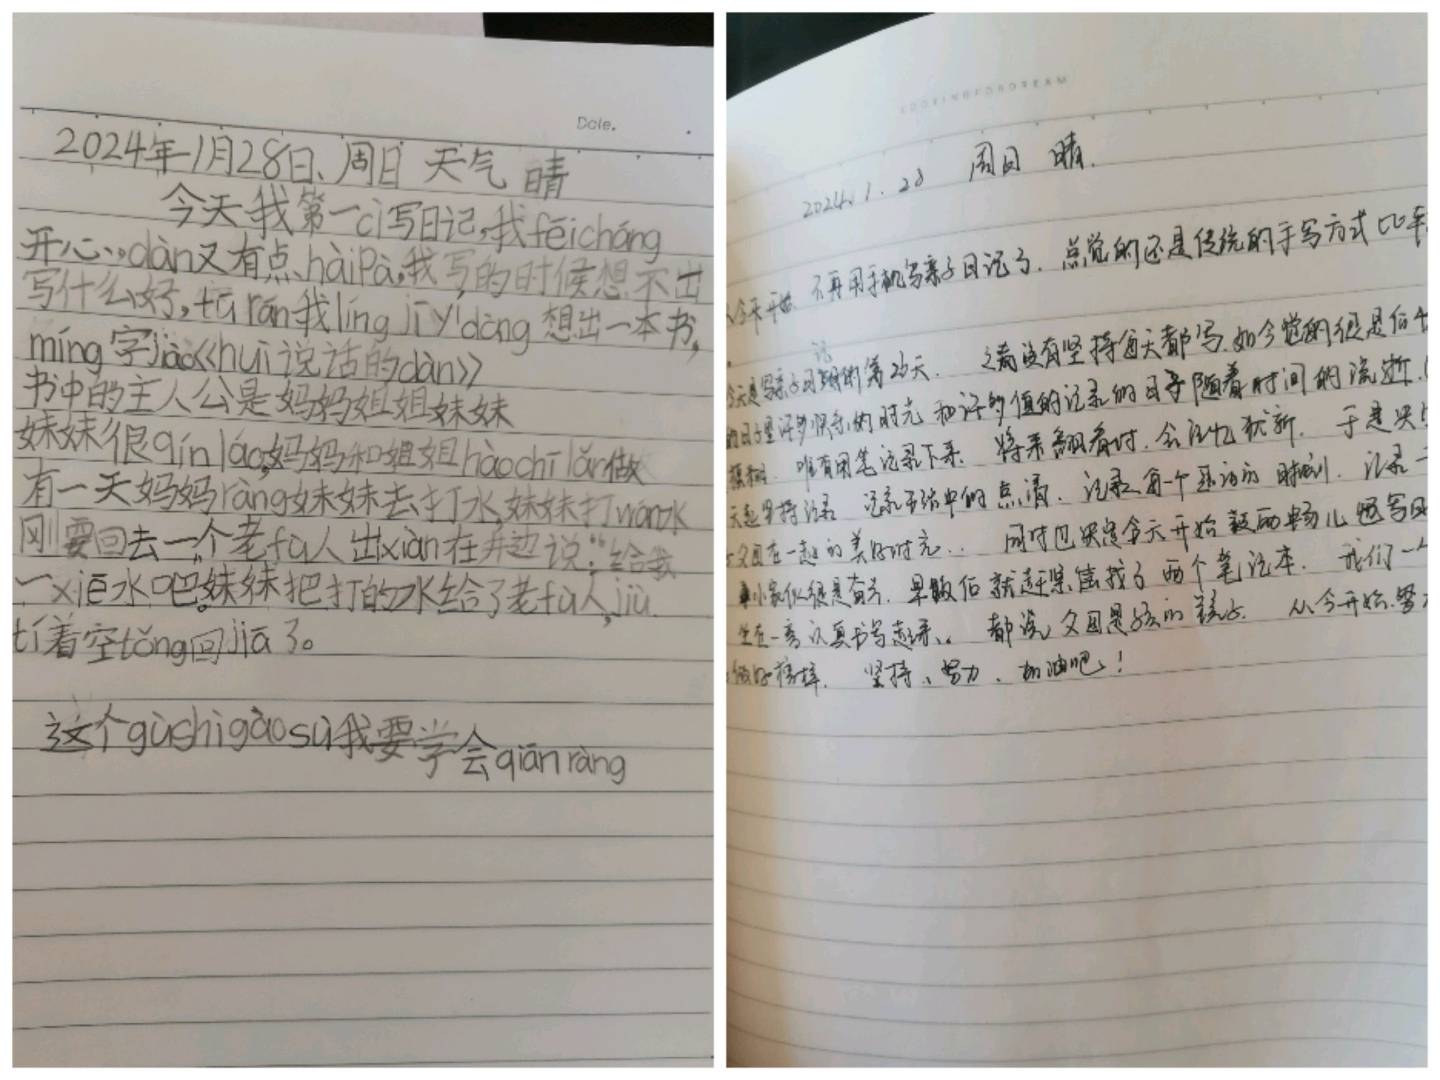 Date.
2024年1月28日、周日 天气 晴
今天我第一cì写日记,我fēicháng
开心,dàn又有点hàiPà,我写的时候想不出
写什么好,tū rán我líng jī yí dòng 想出一本书,
míng字jiào《huì说话的dàn》
书中的主人公是妈妈姐姐妹妹
妹妹很qín láo,妈妈和姐姐hàochī lǎn做
有一天妈妈ràng妹妹去打水,妹妹打wán水
刚要回去一个老fù人出xiàn在井边说:“给我
一xiē水吧妹妹把打的水给了老fù人,jiù
tí着空tǒng回jiā了。
这个gùshigàosù我要学会qiānràng
LOOKINGFORDREAM
2024.1.28 周日 晴.
今天开始 不再用手机写亲子日记了. 总觉的还是传统的手写方式比
今天是写亲子日记的第26天. 之前没有坚持每天都写.如今觉的很是
的日子里许多快乐的时光和许多值的记录的日子随着时间的流逝.
唯有用笔记录下来 将来翻看时.会记忆犹新. 于是决
天起坚持记录 记录生活中的点滴. 记录每一个 时刻. 记录
女团在一起的美好时光.. 同时也决定今天开始 畅儿也写日
小家伙很是奋兴. 早饭后就赶紧 找了两个笔记本. 我们一
坐在一旁认真书写起来.. 都说 父母是孩 的 . 从今开始.
做好榜样. 坚持、努力、加油吧!